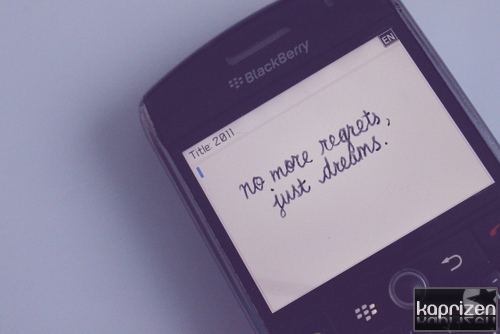 BlackBerry
EN
Title 2011
no more regrets,
just dreams.
kaprizen